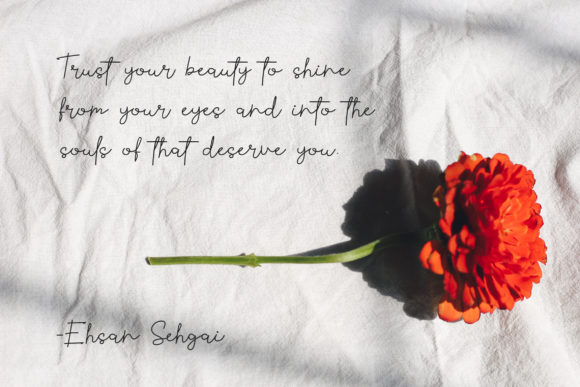 Trust your beauty to shine
from your eyes and into the
souls of that deserve you.
-Ehsan Sehgai